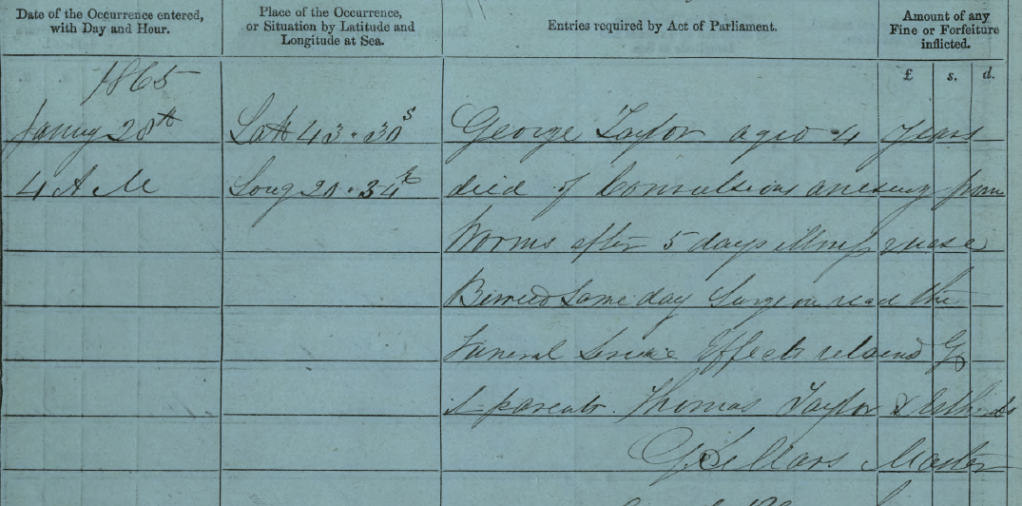 Date of the Occurrence entered, with Day and Hour.
Place of the Occurrence, or Situation by Latitude and Longitude at Sea.
Entries required by Act of Parliament.
Amount of any Fine or Forfeiture inflicted.
£ s. d.
1865
Lat 43.30 S George Taylor aged 4 years
4 A M Long 20.34 died of Convulsions from
Worms after 5 days illness & was
same day Surgeon read the
Funeral Service Effects
parents Thomas Taylor &
Master